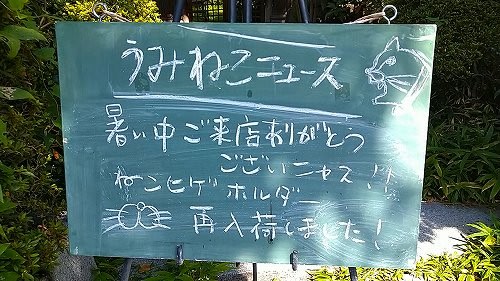 うみねこニュース
暑い中ご来店ありがとう
ございニャス!!
ねこヒゲホルダー
再入荷しました!